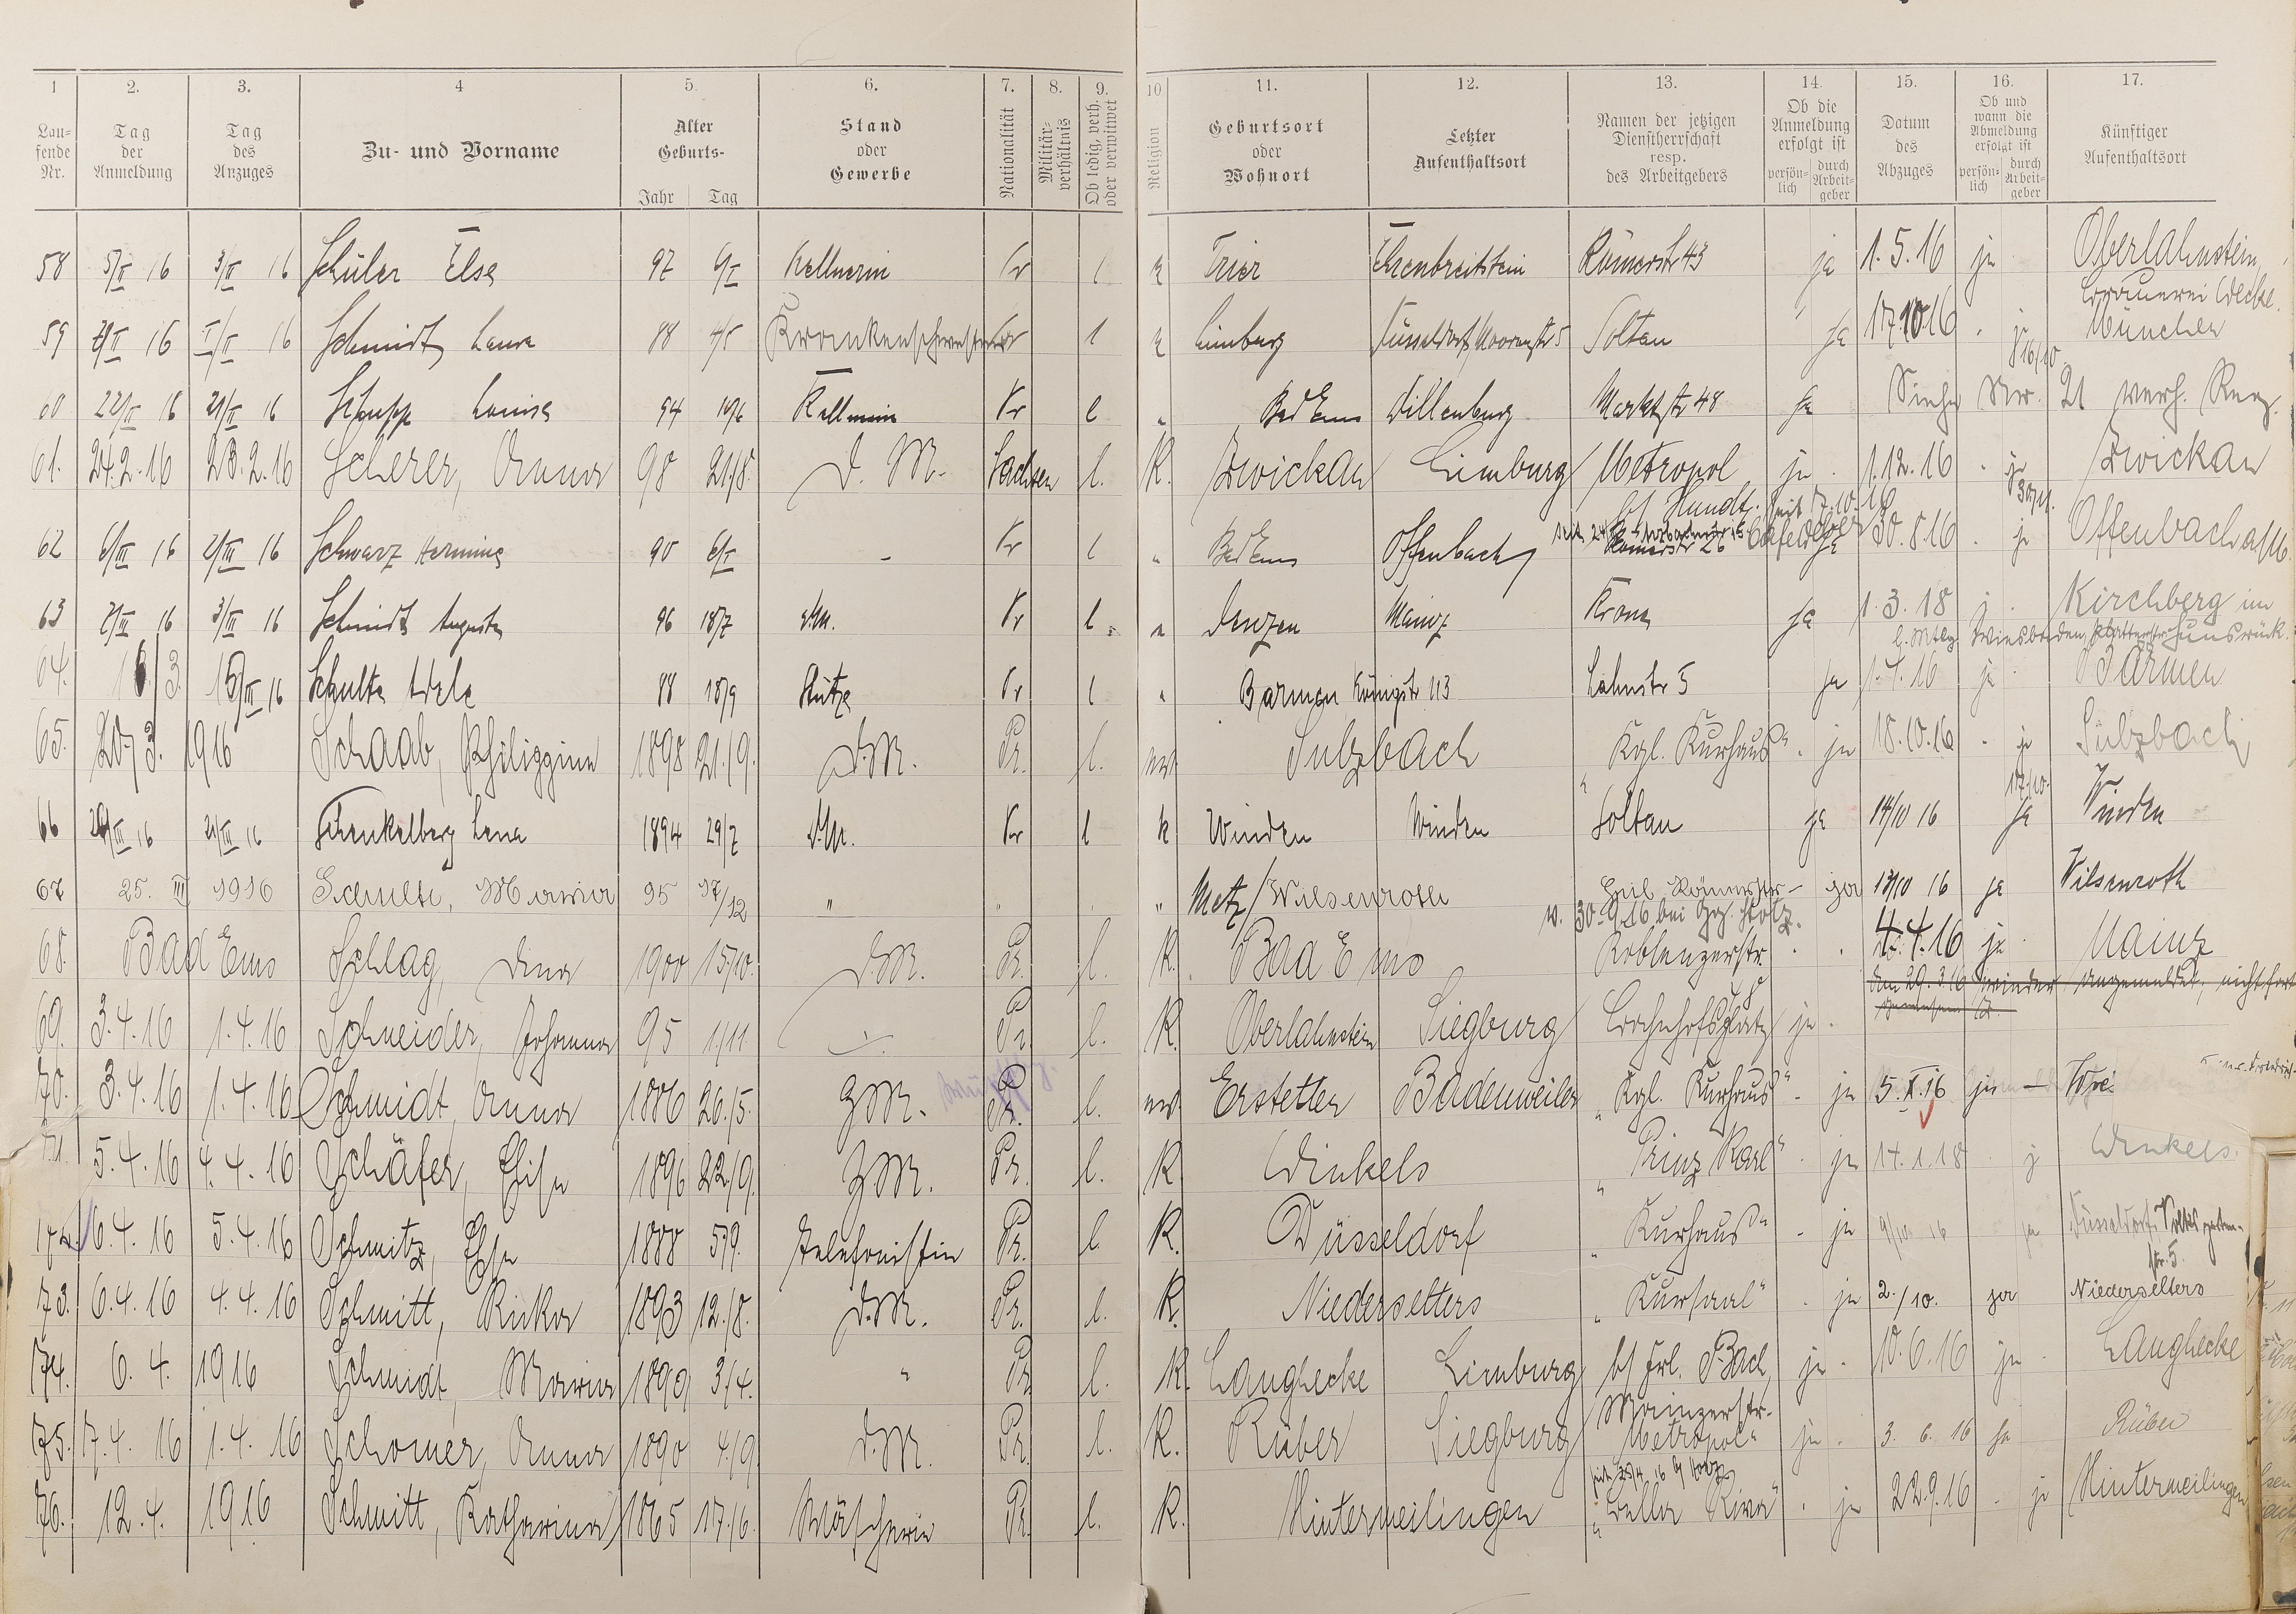 1 2. 3. 4 5. 6. 7. 8. 9. 10 11. 12. 13. 14. 15. 16. 17.
Lau-fende Nr. Tag der Anmeldung Tag des Anzuges Zu- und Vorname Alter Geburts- Jahr Tag Stand oder Gewerbe Nationalität Militär-verhältnis Ob ledig, verh. oder verwitwet Religion Geburtsort oder Wohnort Letzter Aufenthaltsort Namen der jetzigen Dienstherrschaft resp. des Arbeitgebers Ob die Anmeldung erfolgt ist persön-lich durch Arbeit-geber Datum des Abzuges Ob und wann die Abmeldung erfolgt ist persön-lich durch Arbeit-geber Künftiger Aufenthaltsort
58 5/II 16 3/II 16 Schüler Else 97 Kellnerin Pr l k Trier Ehrenbreitstein Römerstr 43 ja 1.5.16 ja Oberlahnstein
59 16 16 Schmidt Laura 88 4/5 Krankenschwester Pr l k Limburg Düsseldorf Moorenstr 5 Soltau ja 17.10.16 . ja 16/10 München
60 22/II 16 21/II 16 Schupp Louise 94 10/6 Kellnerin Pr l " Bad Ems Dillenburg Marktstr 48 ja Siehe Nr. 21 verh. Reg.
61. 24.2.16 23.2.16 Scherer, Anna 98 21./8. D. M. Sachsen l. K. Zwickau Limburg Metropol ja . 1.12.16 . ja 30/11. Zwickau
bei Hundt. seit 7.10.16
62 6/III 16 2/III 16 Schwarz Hermine 90 6/I - Pr l " Bad Ems Offenbach Römerstr 26 ja 30.8.16 . ja Offenbach a/M.
63 2/III 16 3/III 16 Schmidt Auguste 96 18/7 D.M. Pr l. " Denzen Mainz Krone ja 1.3.18 j . Kirchberg im Hunsrück.
l. Mtlg Wiesbaden, Platterstr.
64. 16/3. 15/III 16 Schulte Adele 88 18/9 Stütze Pr l " Barmen Königstr 113 Lahnstr 5 ja 1.4.16 ja . Barmen
65. 20/3. 1916 Schaab, Philippine 1898 21./9. D.M. Pr. l. ev. Sulzbach „Kgl. Kurhaus“ . ja 18.10.16 . ja 17./10. Sulzbach
66 III 16 21/III 16 Schenkelberg Lena 1894 29/7 D.M. Pr l k Winden Winden Soltau ja 14/10 16 ja Winden
67 25. III 1916 Schulte, Maria 95 17/12 " " " Metz / Wilsenroth Römerstr- ja 13/10 16 ja Wilsenroth
v. 30.9.16 bei
68. Bad Ems Schlag, Dina 1900 15./10. D.M. Pr. l. K. Bad Ems Koblenzerstr. . . 4.4.16 ja . Mainz
Am 29.3.16 wieder angemeldet, nicht fort
69. 3.4.16 1.4.16 Schneider, Johanna 95 1/11. Pr. l. K. Oberlahnstein Siegburg Bahnhofsplatz ja .
70. 3.4.16 1.4.16 Schmidt, Anna 1886 26./5. Z.M. Pr. l. ev. Erstetten Badenweiler „Kgl. Kurhaus“ . ja 5.X.16 ja —
71. 5.4.16 4.4.16 Schäfer, Elise 1896 22./9. Z.M. Pr. l. K. Winkels „Prinz Karl“ . ja 14.1.18 . j Winkels.
72. 6.4.16 5.4.16 Schmitz, Else 1888 5/9. Telefonistin Pr. l K. Düsseldorf „Kurhaus“ . ja 9/10 16 ja Düsseldorf
str. 5.
73. 6.4.16 4.4.16 Schmitt, Ricka 1893 12./8. D.M. Pr. l. K. Niederselters „Kursaal“ . ja 2./10. ja Niederselters
74. 6.4. 1916 Schmidt, Maria 1899 3/4. " Pr. l. K. Langhecke Limburg bei Frl. Bach, ja . 10.6.16 ja . Langhecke
Mainzerstr.
75. 7.4.16 1.4.16 Schomer, Anna 1890 4/9. D.M. Pr. l. K. Rüber Siegburg „Metropol“ ja . 3.6.16 ja Rüber
76. 12.4. 1916 Schmitt, Katharina 1865 17./6. Wäscherin Pr. l. K. Hintermeilingen „Villa Riva“ . ja 22.9.16 . ja Hintermeilingen